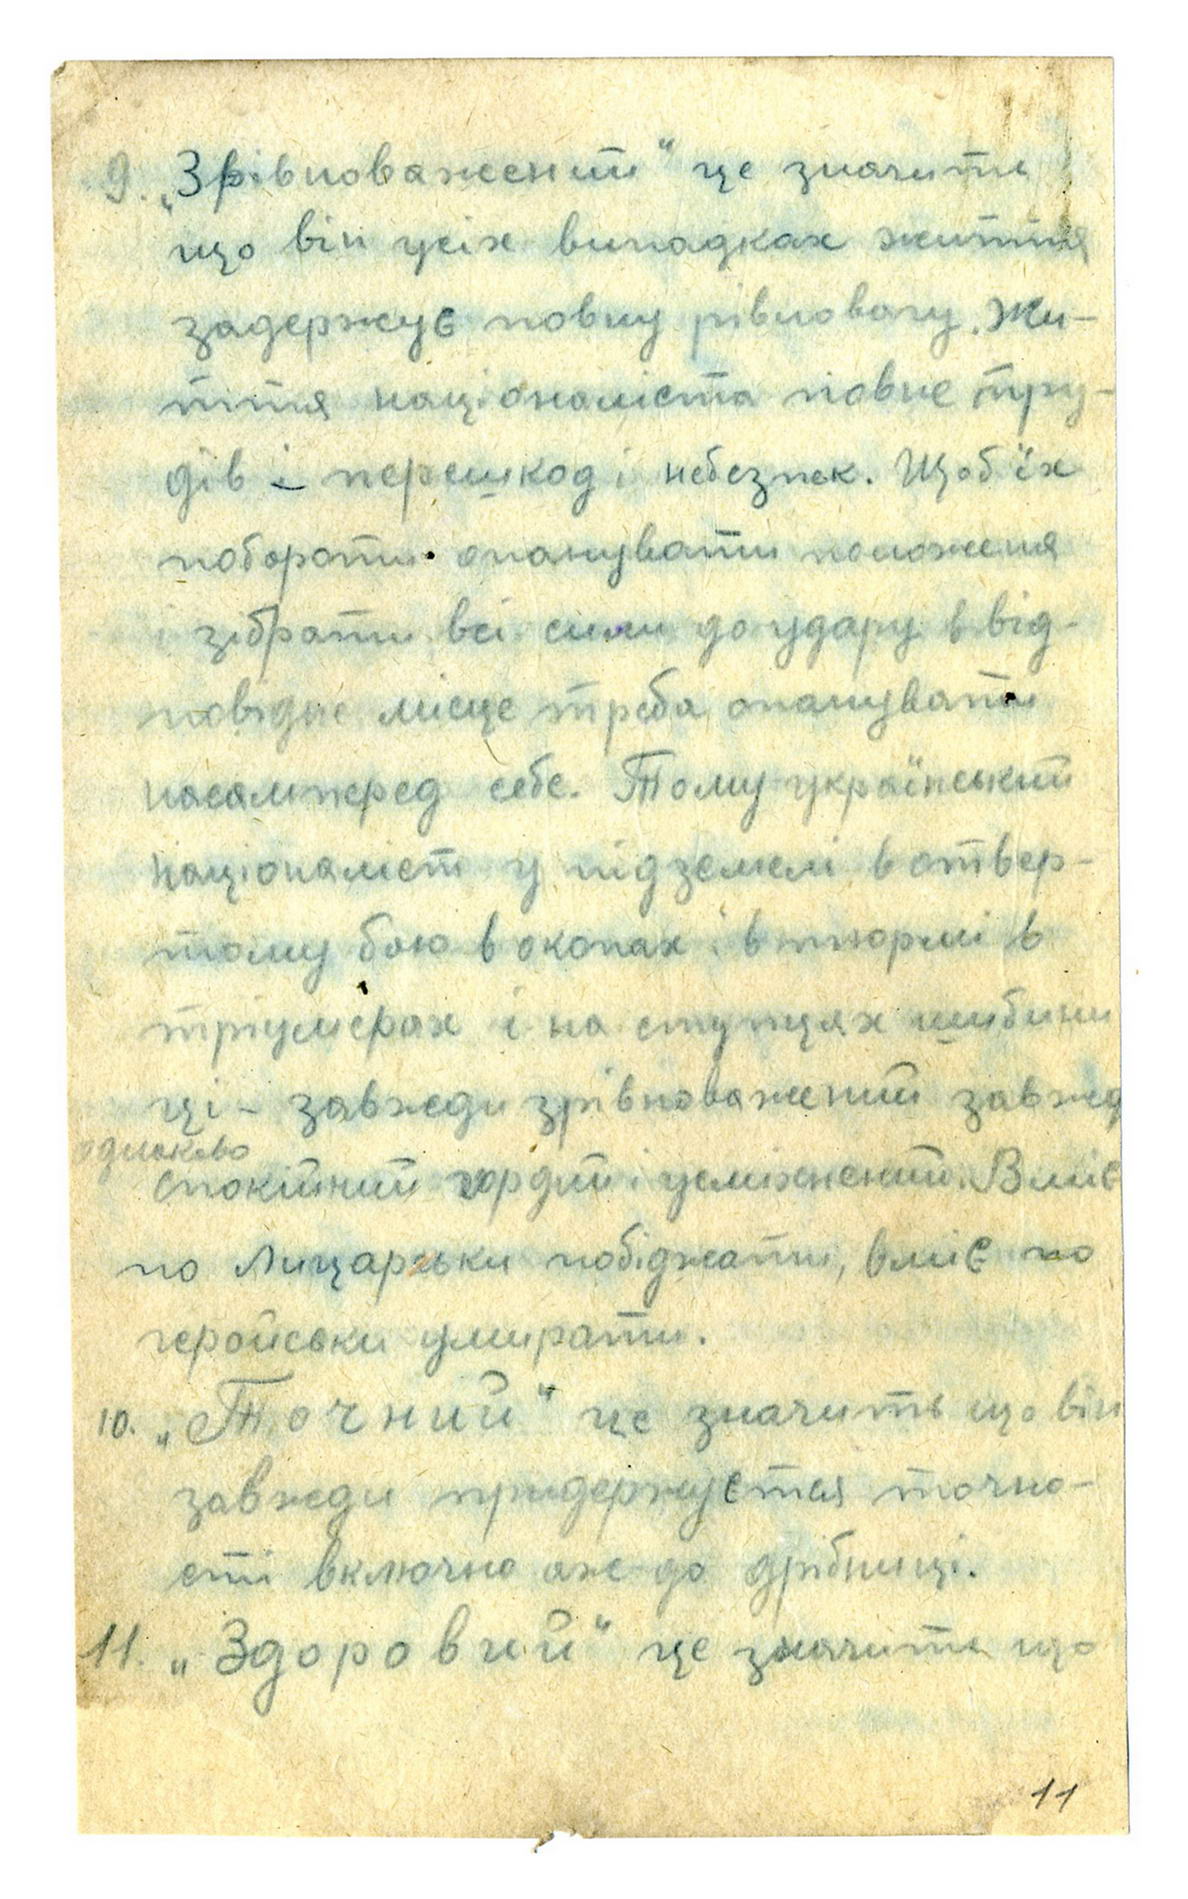 9. „Зрівноважений" це значить
що він усіх випадках життя
задержує повну рівновагу. Жи-
ття націоналіста повне тру-
дів і перешкод і небезпек. Щоб їх
побороти опанувати положення
і зібрати всі сили до удару в від-
повідне місце треба опанувати
насамперед себе. Тому український
націоналіст у підземелі в отвер-
тому бою в окопах і в тюрмі в
тріумфах і на ступцях шибини
ці – завжди зрівноважений завжд
однаково
спокійний гордий і усміхнений. Вміє
по лицарськи побіджати, вміє по
геройськи умирати.
10. „Точний" це значить що він
завжди придержується точно-
сті включно аж до дрібниці.
11. „Здоровий" це значить що
11